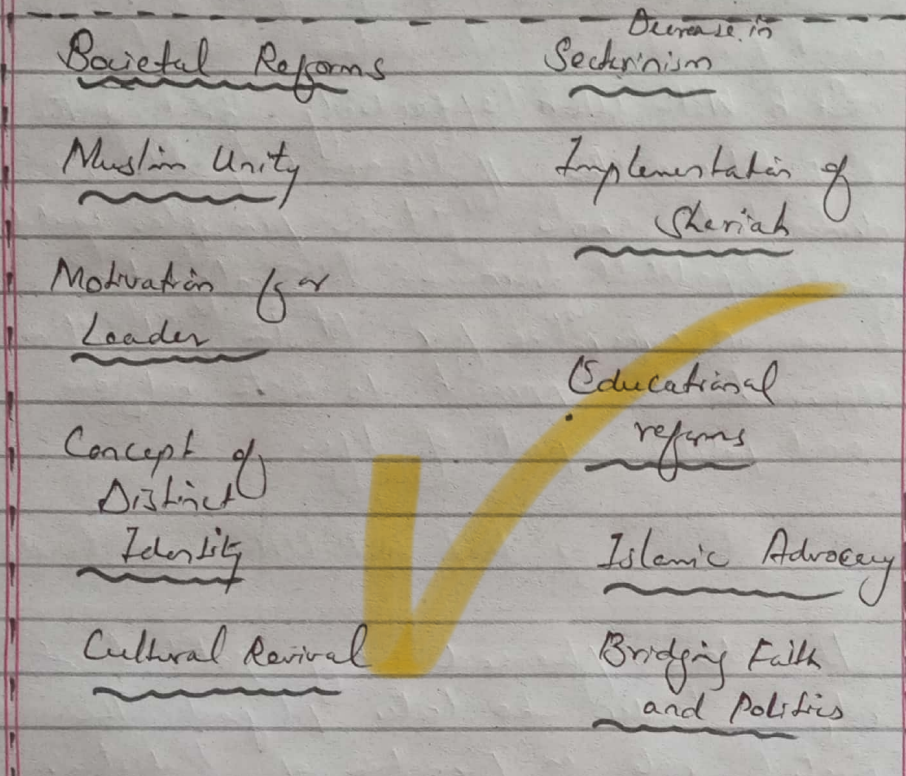 Societal Reforms
Muslim Unity
Motivation for
Leader
Concept of
Distinct
Identity
Cultural Revival
Decrease in
Sectrinism
Implementation of
Sheriah
Educational
reforms
Islamic Advocacy
Bridging Faith
and Politics